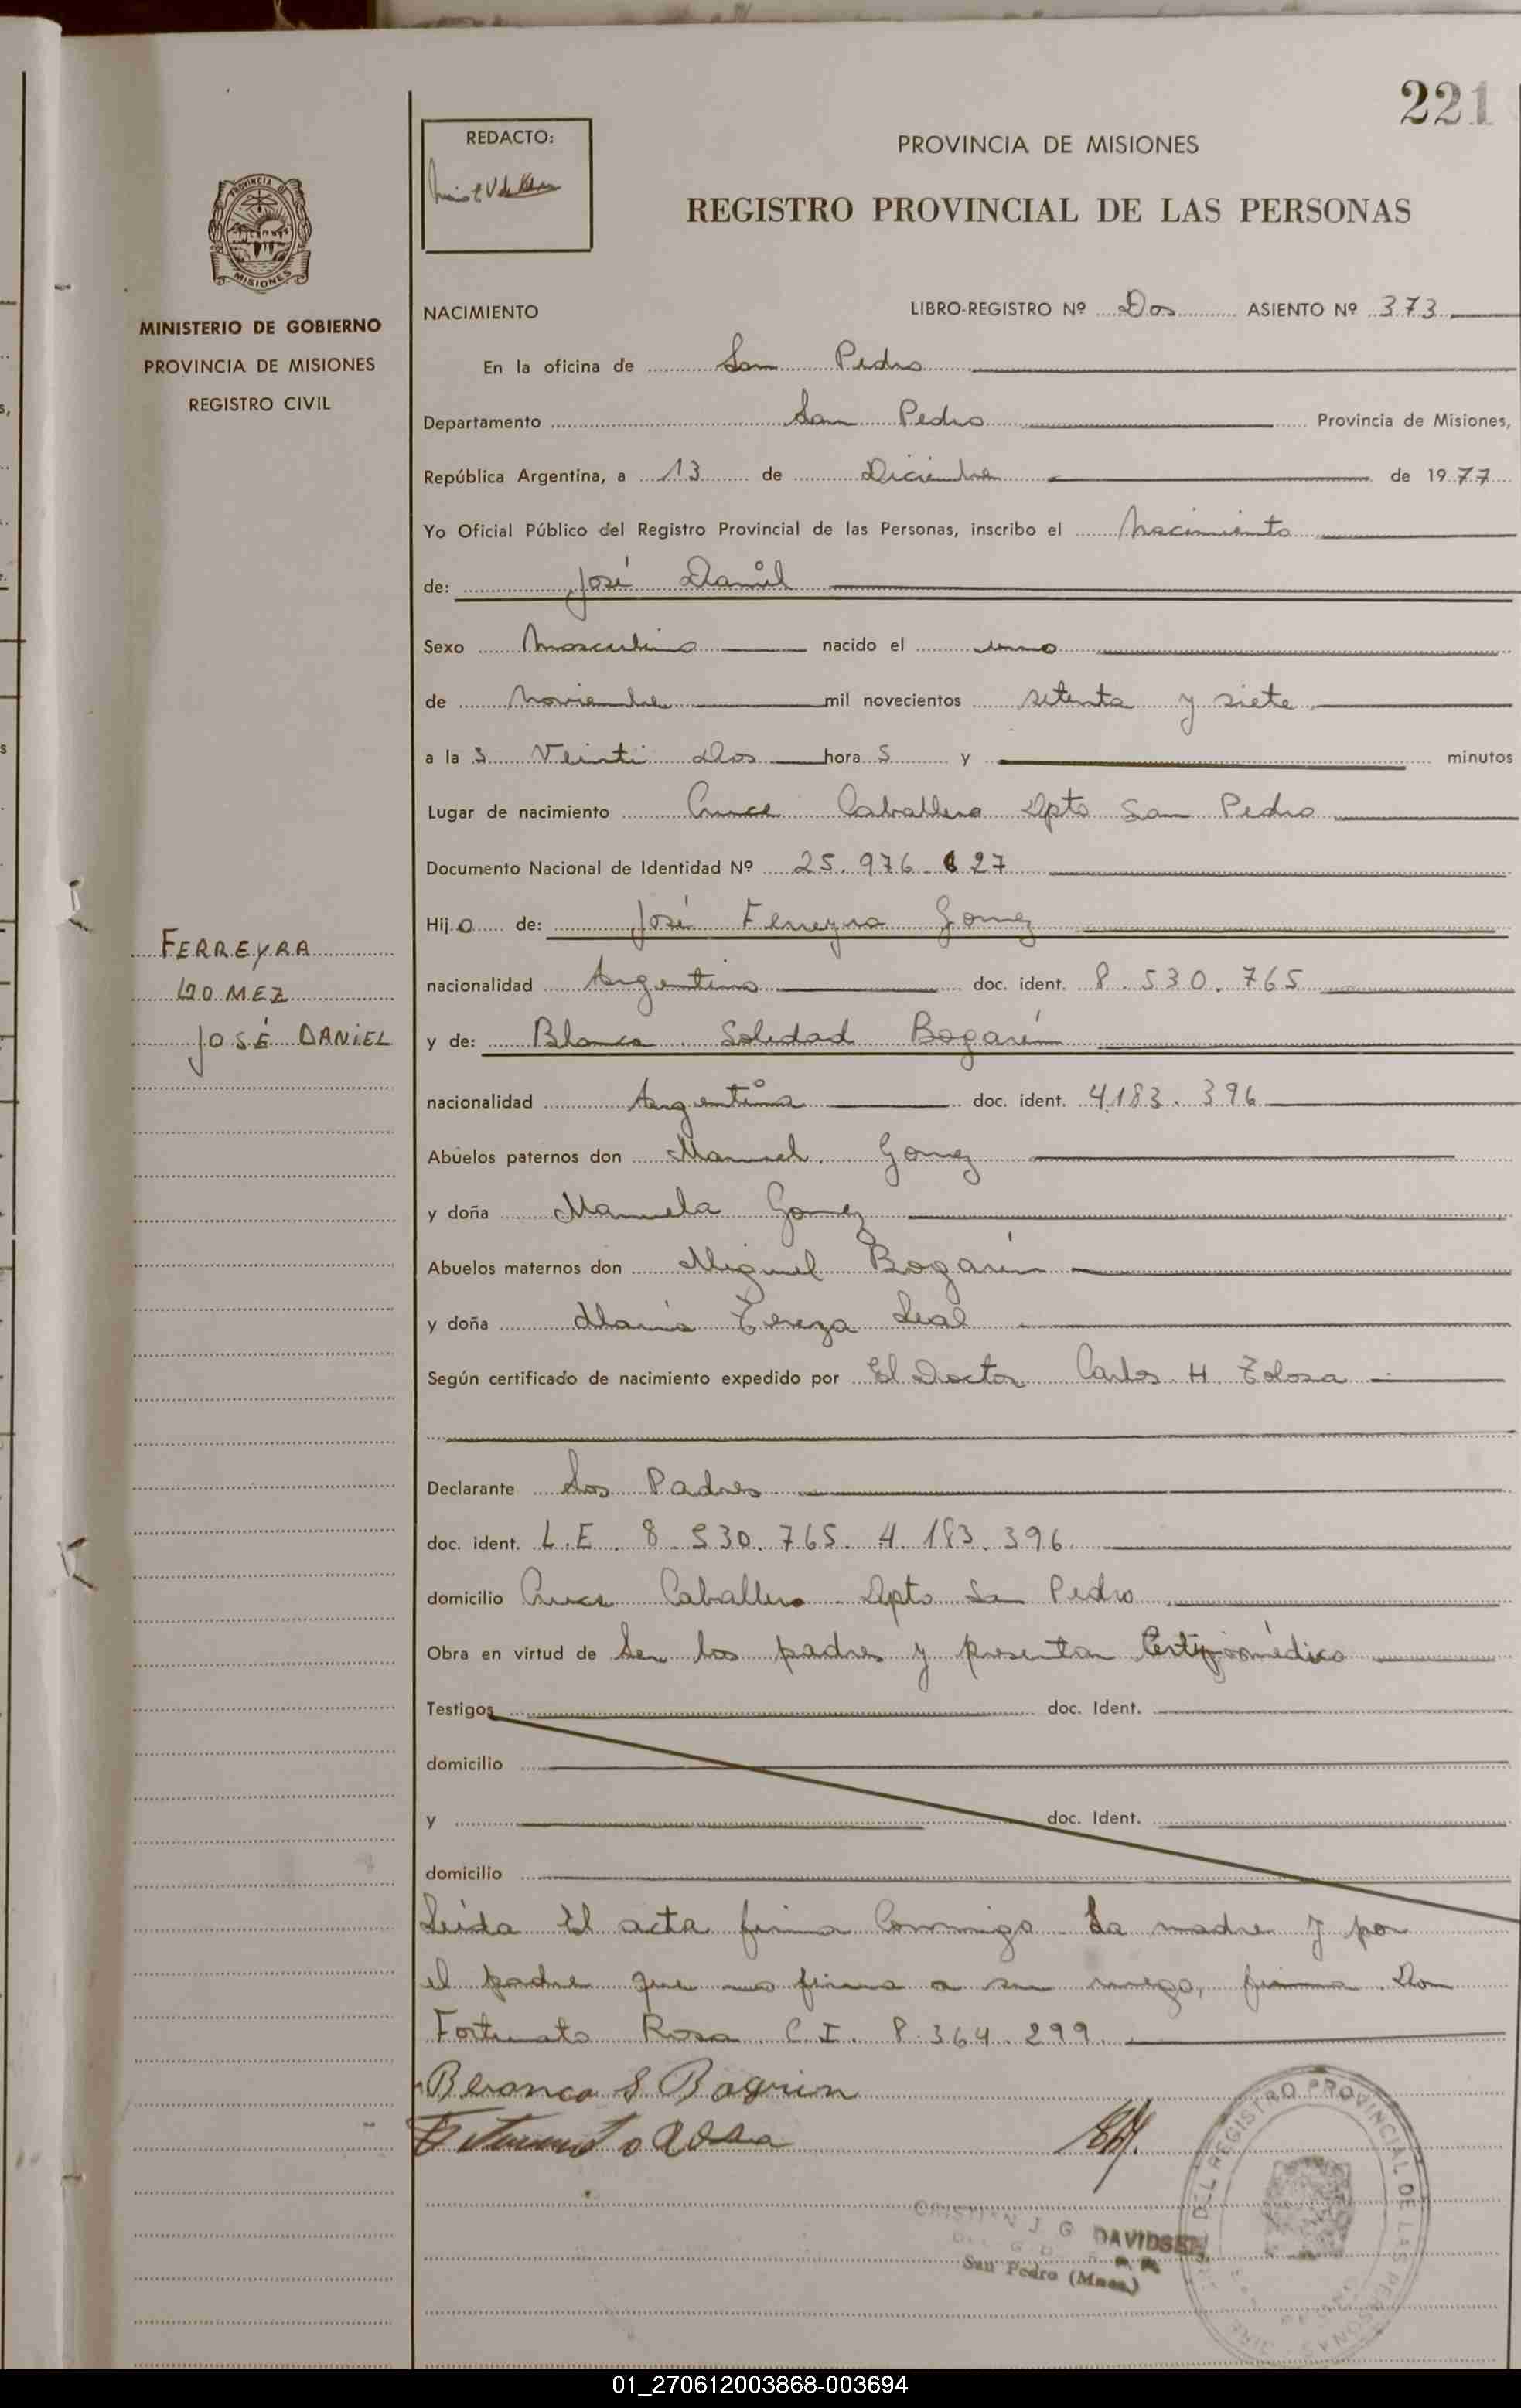 221
REDACTO:
PROVINCIA DE MISIONES
REGISTRO PROVINCIAL DE LAS PERSONAS
PROVINCIA DE
MISIONES
MINISTERIO DE GOBIERNO
PROVINCIA DE MISIONES
REGISTRO CIVIL
NACIMIENTO LIBRO-REGISTRO Nº Dos ASIENTO Nº 373
En la oficina de San Pedro
Departamento San Pedro Provincia de Misiones,
República Argentina, a 13 de Diciembre de 1977
Yo Oficial Público del Registro Provincial de las Personas, inscribo el Nacimiento
de: José Daniel
Sexo Masculino nacido el uno
de Noviembre mil novecientos setenta y siete
a las Veinti dos horas y minutos
Lugar de nacimiento Cruce Caballero Dpto San Pedro
Documento Nacional de Identidad Nº 25.976.627
Hijo de: José Ferreyra Gomez
nacionalidad Argentino doc. ident. 8.530.765
y de: Blanca Soledad Bogarín
nacionalidad Argentina doc. ident. 4.183.396
Abuelos paternos don Manuel Gomez
y doña Manuela Gomez
Abuelos maternos don Miguel Bogarín
y doña María Tereza Leal
Según certificado de nacimiento expedido por El Doctor Carlos H. Tolosa
Declarante Los Padres
doc. ident. L.E. 8.530.765. 4.183.396
domicilio Cruce Caballero Dpto San Pedro
Obra en virtud de Ser los padres y presentan Certif. médico
Testigos doc. Ident.
domicilio
y doc. Ident.
domicilio
Leída El acta firma Conmigo La madre y por
el padre que no firma a su ruego, firma Don
Fortunato Rosa C.I. 8.364.299.
FERREYRA
GOMEZ
JOSÉ DANIEL
Blranca S Bogrin
Rosa
CRISTIAN J. G. DAVIDSEN
San Pedro (Mnes.)
DEL REGISTRO PROVINCIAL DE LAS PERSONAS
01_270612003868-003694